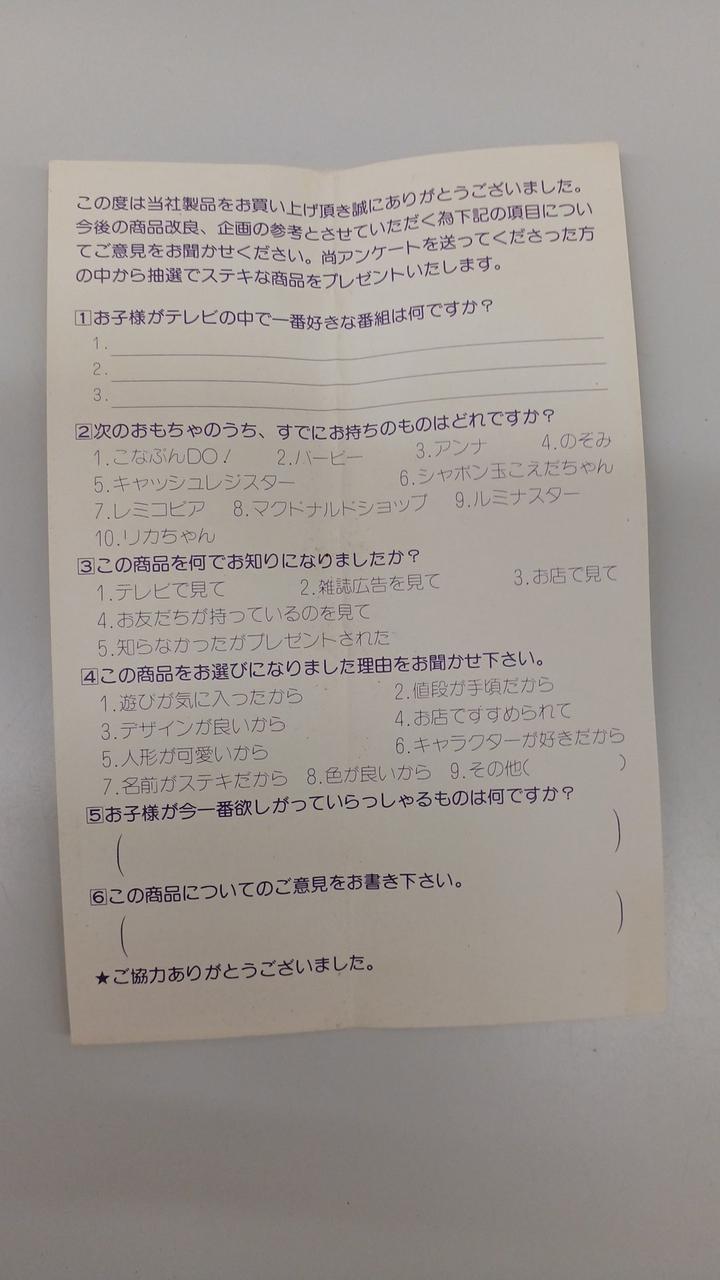 この度は当社製品をお買い上げ頂き誠にありがとうございました。
今後の商品改良、企画の参考とさせていただく為下記の項目につい
てご意見をお聞かせください。尚アンケートを送ってくださった方
の中から抽選でステキな商品をプレゼントいたします。
1お子様がテレビの中で一番好きな番組は何ですか？
1.
2.
3.
2次のおもちゃのうち、すでにお持ちのものはどれですか？
1.こなぷんDO！ 2.バービー 3.アンナ 4.のぞみ
5.キャッシュレジスター 6.シャボン玉こえだちゃん
7.レミコピア 8.マクドナルドショップ 9.ルミナスター
10.リカちゃん
3この商品を何でお知りになりましたか？
1.テレビで見て 2.雑誌広告を見て 3.お店で見て
4.お友だちが持っているのを見て
5.知らなかったがプレゼントされた
4この商品をお選びになりました理由をお聞かせ下さい。
1.遊びが気に入ったから 2.値段が手頃だから
3.デザインが良いから 4.お店ですすめられて
5.人形が可愛いから 6.キャラクターが好きだから
7.名前がステキだから 8.色が良いから 9.その他( )
5お子様が今一番欲しがっていらっしゃるものは何ですか？
( )
6この商品についてのご意見をお書き下さい。
( )
★ご協力ありがとうございました。